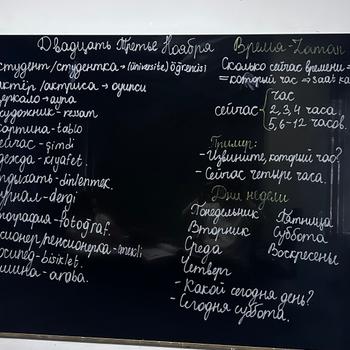 Двадцать Третье Ноября
студент/студентка → (üniversite) öğrencisi
актёр/актриса → oyuncu
зеркало - ayna
художник - ressam
картина - tablo
сейчас - şimdi
одежда - kıyafet.
отдыхать - dinlenmek.
журнал - dergi
фотография - fotoğraf.
пенсионер, пенсионерка - emekli
велосипед - bisiklet.
машина - araba.
Время - Zaman
Сколько сейчас времени =
= который час ⇒ saat ka
сейчас { час
2, 3, 4 часа.
5, 6-12 часов.
Пример:
- Извините, который час?
- Сейчас четыре часа.
Дни недели
Понедельник Пятница
Вторник Суббота
Среда Воскресены
Четверг
- Какой сегодня день?
- Сегодня суббота.